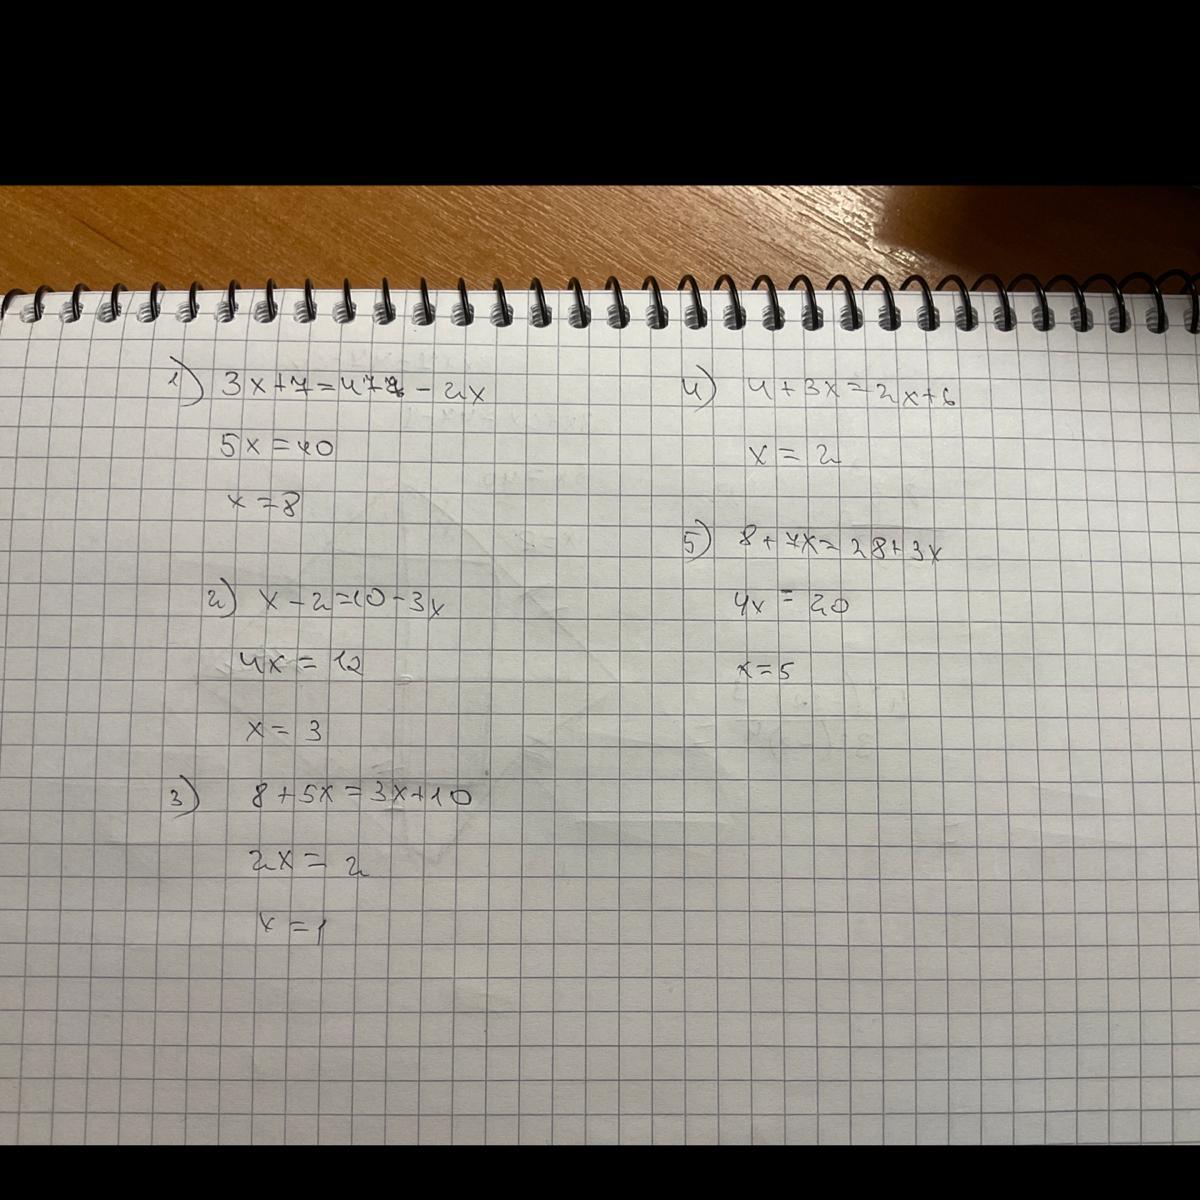 1) 3x+7=47 - 2x
5x=40
x=8
2) x-2=10-3x
4x=12
x=3
3) 8+5x=3x+10
2x=2
x=1
4) 4+3x=2x+6
x=2
5) 8+7x=28+3x
4x=20
x=5